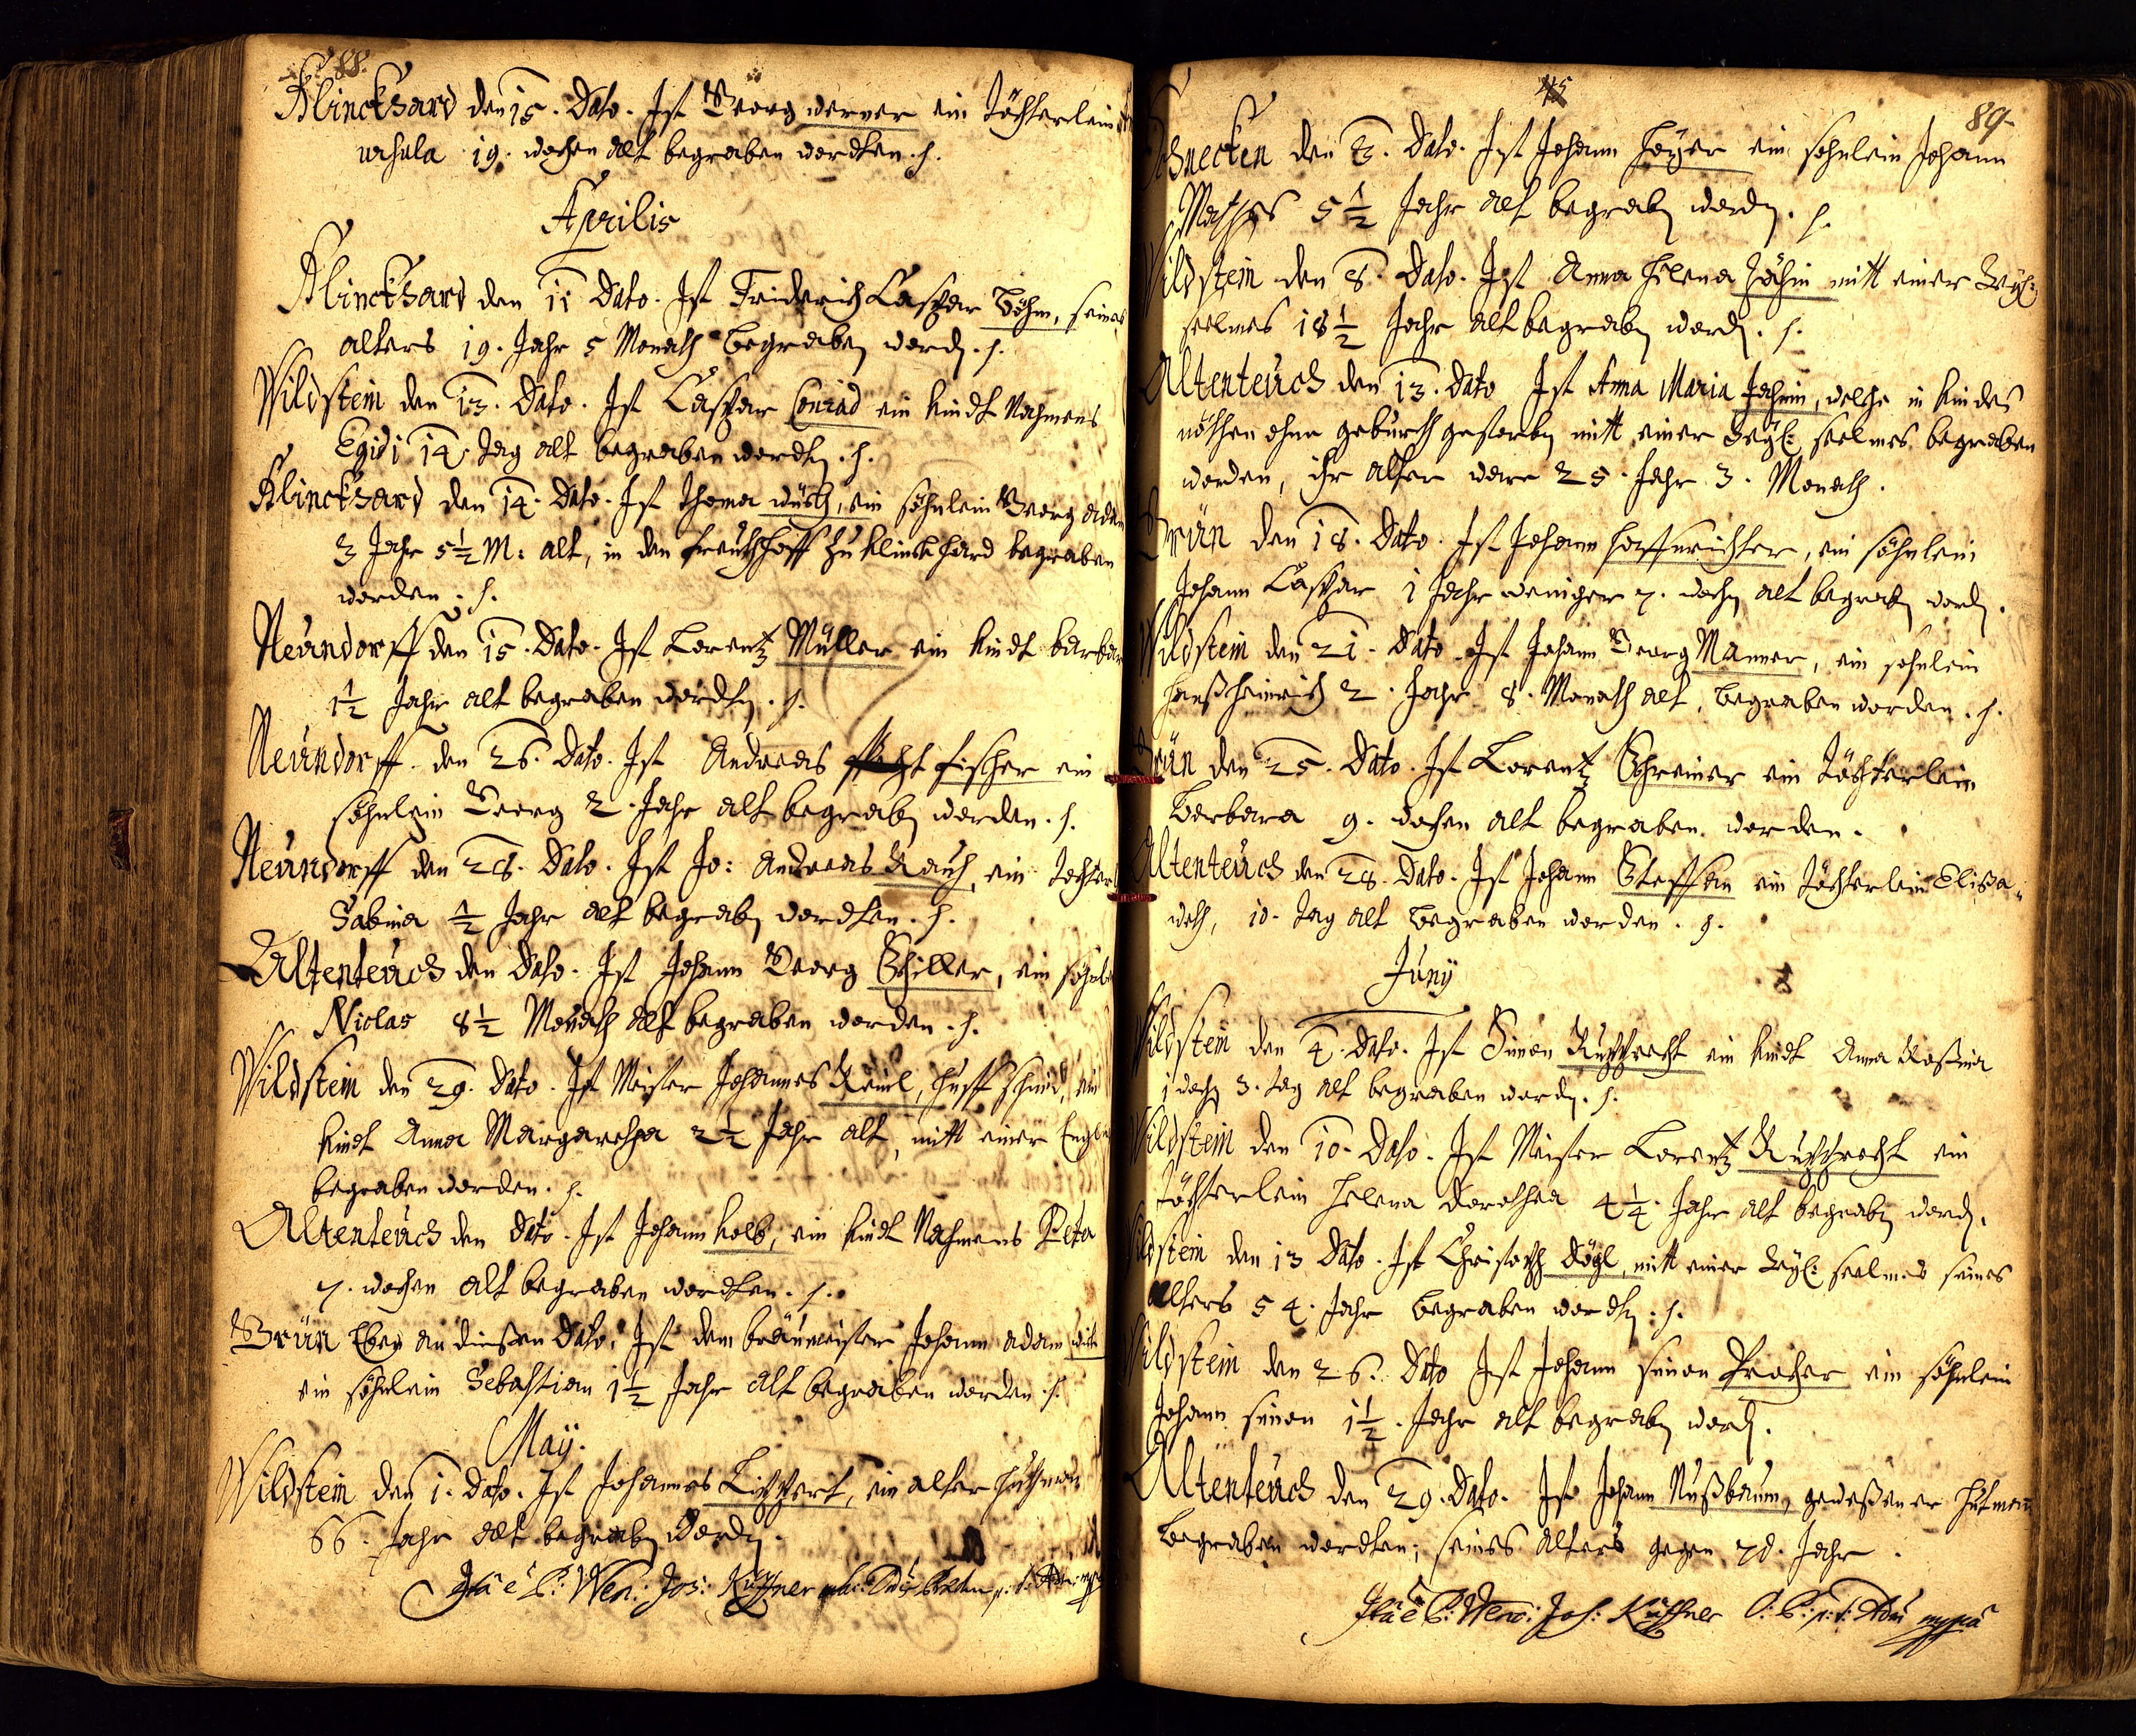 88.
Klinckhard den 15. Dato. Ist Georg werner ein Töchterlein
ursula 19. wochen alt begraben wordten. h.
Aprilis
Klinckhard den 11 Dato. Ist Friderich Caspar Böhm, seines
alters 19. Jahr 5 Monath begraben word. h.
Wildstein den 13. Dato. Ist Caspar Conrad ein kindt Nahmens
Egidi 14. Tag alt begraben wordten. h.
Klinckhard den 14. Dato. Ist Thoma ein söhnlein Georg adam
3 Jahr 5½ M: alt, in den freuthoff zu Klinckhard begraben
worden. h.
Neündorff den 15. Dato. Ist Lorentz Müller ein kindt barbara
1½ Jahr alt begraben wordten. h.
Neündorff den 26. Dato. Ist Andreas fischer ein
söhnlein Georg 2. Jahr alt begraben worden. h.
Neündorff den 28. Dato. Ist Jo: Andreas Rauh, ein Tochter
Sabina ½ Jahr alt begraben wordten. h.
Altenteüch den Dato. Ist Johann Georg Schiller, ein söhnl
Niclas 8½ Monath alt begraben worden. h.
Wildstein den 29. Dato. Ist Meister Johannes huffschmid, ein
kindt Anna Margaretha 2½ Jahr alt, mitt einer
begraben worden. h.
Altenteüch den Dato. Ist Johann Kolb, ein kindt Nahmens
7. wochen alt begraben wordten. h.
Grün Eben an diesen Dato, Ist dem bräumeister Johann adam
ein söhnlein Sebastian 1½ Jahr alt begraben worden. h.
May.
Wildstein den 1. Dato. Ist Johannes Lippert, ein alter huthman
66. Jahr alt begraben word.
Ita e P: Wen: Jos: Küffner
45
89.
Schnecken den 3. Dato. Ist Johann Höyer ein söhnlein Johann
Mathes 5½ Jahr alt begraben word. h.
Wildstein den 8. Dato. Ist Anna Helena mitt einer
seelmes 18½ Jahr alt begraben word. h.
Altenteüch den 13. Dato Ist Anna Maria welche in kindes
nöthen ohne geburth gestorben mitt einer seelmes begraben
worden, ihr alter ware 25. Jahr 3. Monath.
Grün den 18. Dato. Ist Johann Hoffrichter, ein söhnlein
Johann Caspar 1 Jahr weniger 7. wochen alt begraben word.
Wildstein den 21. Dato Ist Johann Georg Manner, ein sohnlein
Hanß Heinrich 2. Jahr 8. Monath alt, begraben worden. h.
Grün den 25. Dato. Ist Lorentz Schreiner ein Töchterlein
Barbara 9. wochen alt begraben worden.
Altenteüch den 28. Dato. Ist Johann Steffan ein Töchterlein Elisa-
weth, 10. Tag alt begraben worden. h.
Juny
Wildstein den 4. Dato. Ist Simon Rupprecht ein kindt Anna Rosina
1 woch 3. tag alt begraben word. h.
Wildstein den 10. Dato. Ist Meister Lorentz Rupprecht ein
Töchterlein Helena Dorothea 4¼. Jahr alt begraben word.
Wildstein den 13 Dato. Ist Christoph Dögl, mitt einer seelmes seines
alters 54. Jahr begraben wordten. h.
Wildstein den 26. Dato Ist Johann simon Procher ein söhnlein
Johann simon 1½. Jahr alt begraben word.
Altenteüch den 29. Dato. Ist Johann Nußbaum, geweßener hutman
begraben wordten, seines alters gegen 70. Jahr.
Ita e P: Wenc: Jos: Küffner